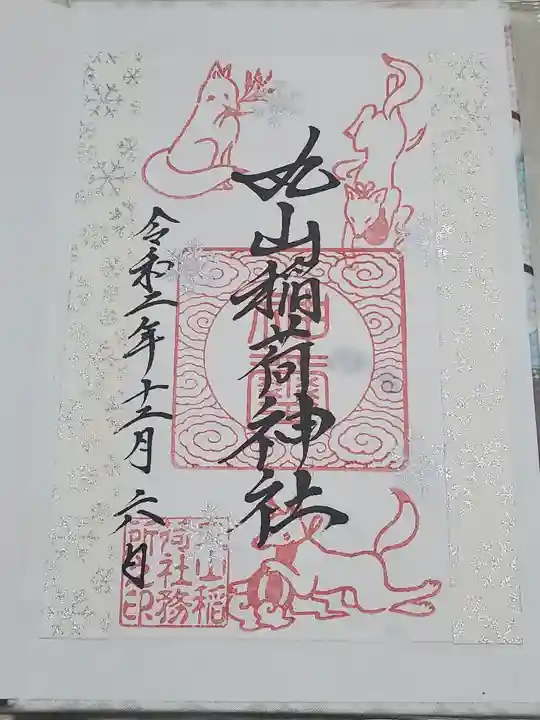 丸山稲荷神社
令和二年十二月六日
丸山稲
荷社務
所印